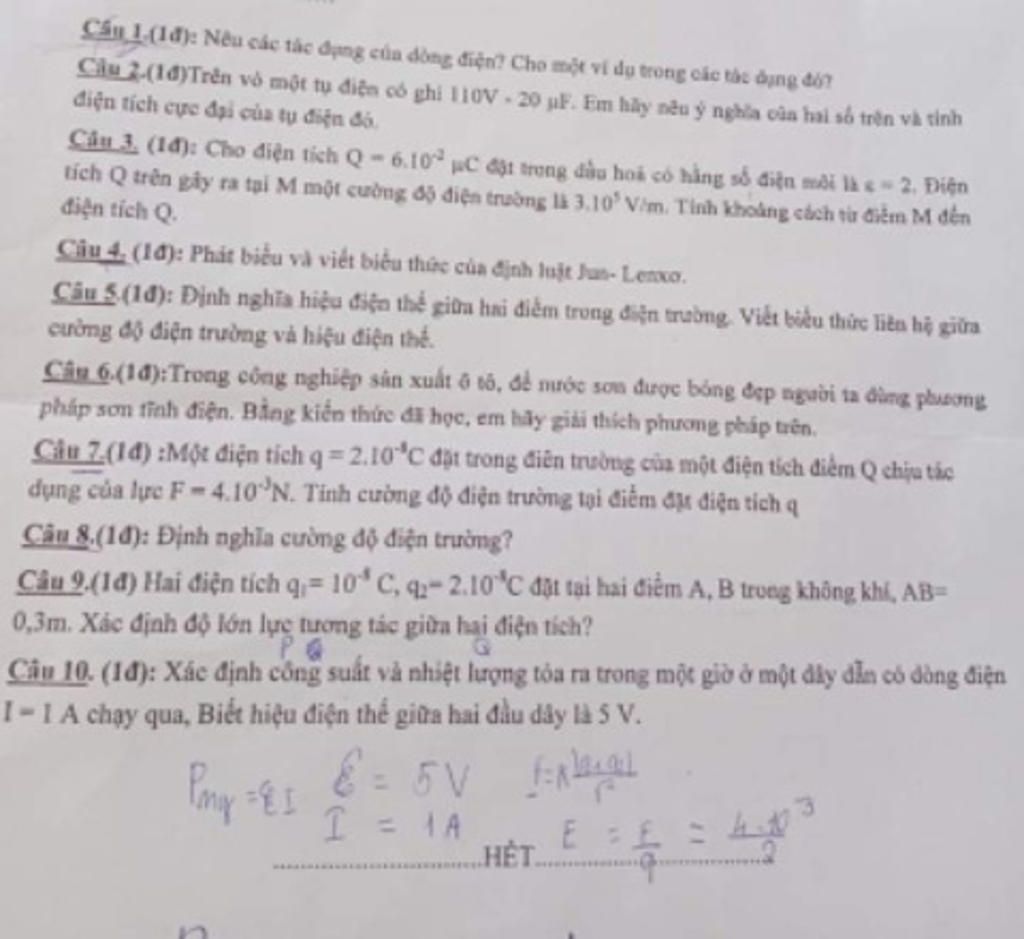 Câu 1.(1đ): Nêu các tác dụng của dòng điện? Cho một ví dụ trong các tác dụng đó?
Câu 2.(1đ)Trên vỏ một tụ điện có ghi 110V - 20 μF. Em hãy nêu ý nghĩa của hai số trên và tính
điện tích cực đại của tụ điện đó.
Câu 3. (1đ): Cho điện tích Q = 6.10⁻² μC đặt trong dầu hoả có hằng số điện môi là ε = 2. Điện
tích Q trên gây ra tại M một cường độ điện trường là 3.10⁵ V/m. Tính khoảng cách từ điểm M đến
điện tích Q.
Câu 4. (1đ): Phát biểu và viết biểu thức của định luật Jun- Lenxơ.
Câu 5.(1đ): Định nghĩa hiệu điện thế giữa hai điểm trong điện trường. Viết biểu thức liên hệ giữa
cường độ điện trường và hiệu điện thế.
Câu 6.(1đ):Trong công nghiệp sản xuất ô tô, để nước sơn được bóng đẹp người ta dùng phương
pháp sơn tĩnh điện. Bằng kiến thức đã học, em hãy giải thích phương pháp trên.
Câu 7.(1đ) :Một điện tích q = 2.10⁻⁸C đặt trong điên trường của một điện tích điểm Q chịu tác
dụng của lực F = 4.10⁻³N. Tính cường độ điện trường tại điểm đặt điện tích q
Câu 8.(1đ): Định nghĩa cường độ điện trường?
Câu 9.(1đ) Hai điện tích q₁= 10⁻⁸ C, q₂= 2.10⁻⁸C đặt tại hai điểm A, B trong không khí, AB=
0,3m. Xác định độ lớn lực tương tác giữa hai điện tích?
P Q Q
Câu 10. (1đ): Xác định công suất và nhiệt lượng tỏa ra trong một giờ ở một dây dẫn có dòng điện
I = 1 A chạy qua, Biết hiệu điện thế giữa hai đầu dây là 5 V.
Png = ℰI ℰ = 5V
I = 1A E = F/q
HẾT